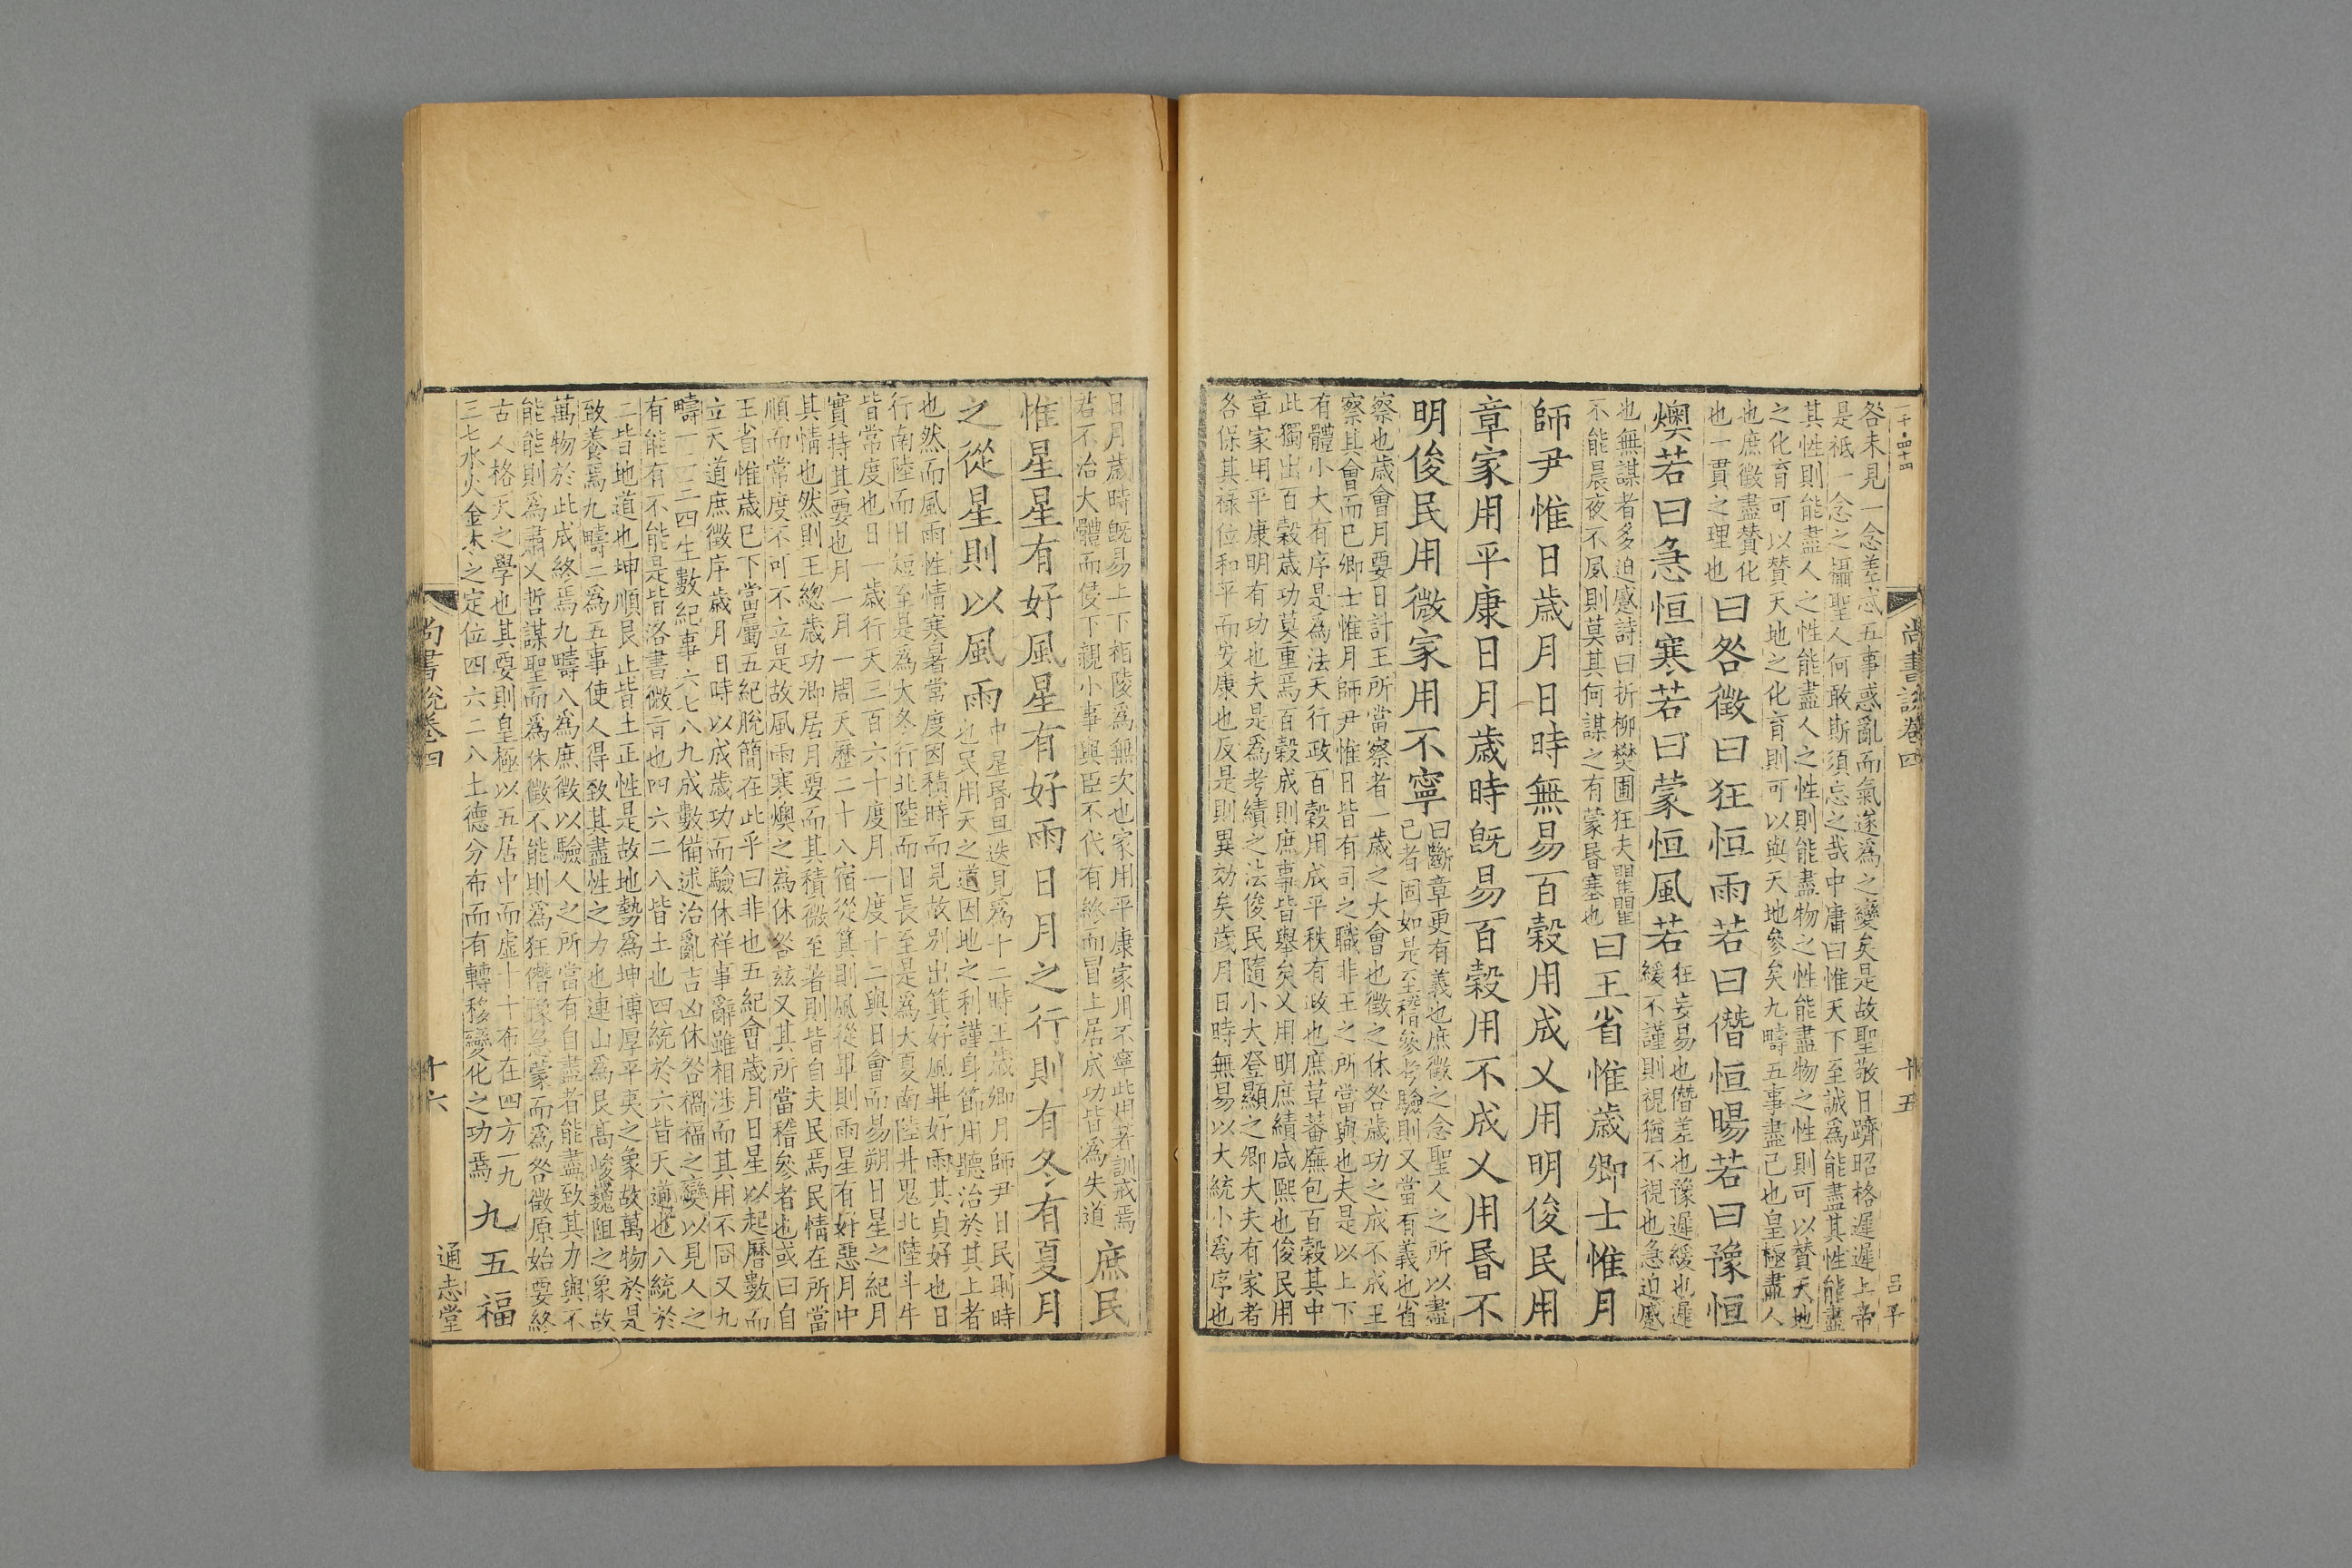 咎未見一念差忒五事惑亂而氣遂為之變矣是故聖敬日躋昭格遲遲上帝
是祗一念之攝聖人何敢斯須忘之哉中庸曰惟天下至誠為能盡其性能盡
其性則能盡人之性能盡人之性則能盡物之性能盡物之性則可以贊天地
之化育可以贊天地之化育則可以與天地參矣九疇五事盡己也皇極盡人
也庶徵盡贊化
也一貫之理也
曰咎徵曰狂恒雨若曰僭恒暘若曰豫恒
燠若曰急恒寒若曰蒙恒風若
狂妄易也僭差也豫遲緩也遲
緩不謹則視猶不視也急迫蹙
也無謀者多迫蹙詩曰折柳樊圃狂夫瞿瞿
不能晨夜不夙則莫其何謀之有蒙昬塞也
曰王省惟歲卿士惟月
師尹惟日歲月日時無易百穀用成乂用明俊民用
章家用平康日月歲時旣易百穀用不成乂用昬不
明俊民用微家用不寧
曰斷章更有義也庶徵之念聖人之所以盡
己者固如是至稽參考驗則又當有義也省
察也歲會月要日計王所當察者一歲之大會也徵之休咎歲功之成不成王
察其會而已卿士惟月師尹惟日皆有司之職非王之所當與也夫是以上下
有體小大有序是為法天行政百穀用成平秩有政也庶草蕃廡包百穀其中
此獨出百穀歲功莫重焉百穀成則庶事皆舉矣乂用明庶績咸熙也俊民用
章家用平康明有功也夫是為考績之法俊民隨小大登顯之卿大夫有家者
各保其祿位和平而安康也反是則異効矣歲月日時無易以大統小為序也
尚書說卷四
十五
日月歲時旣易上下相陵為無次也家用平康家用不寧此用著訓戒焉
若不治大體而侵下親小事與臣不代有終而冒上居成功皆為失道
庶民
惟星星有好風星有好雨日月之行則有冬有夏月
之從星則以風雨
中星昬旦迭見為十二時王歲卿月師尹日民則時
也民用天之道因地之利謹身節用聽治於其上者
也然而風雨性情寒暑常度因積時而見故別出箕好風畢好雨其貞好也日
行南陸而日短至是為大冬行北陸而日長至是為大夏南陸井鬼北陸斗牛
皆常度也日一歲行天三百六十度月一度十二與日會而易朔日星之紀月
實持其要也月一月一周天歷二十八宿從箕則風從畢則雨星有好惡月中
其情也然則王總歲功卿居月要而其積微至著則皆自夫民焉民情在所當
順而常度不可不立是故風雨寒燠之為休咎茲又其所當稽參者也或曰自
王省惟歲已下當屬五紀脫簡在此乎曰非也五紀會歲月日星以起曆數而
立天道庶徵序歲月日時以成歲功而驗休祥事辭雖相涉而其用不同又九
疇一二三四生數紀事六七八九成數備述治亂吉凶休咎禍福之變以見人之
有能有不能是皆洛書微言也四六二八皆土也四統於六皆天道也八統於
二皆地道也坤順艮止皆土正性是故地勢為坤博厚平夷之象故萬物於是
致養焉九疇二為五事使人得致其盡性之力也連山為艮高峻巍阻之象故
萬物於此成終焉九疇八為庶徵以驗人之所當有自盡者能盡致其力與不
能能則為肅乂哲謀聖而為休徵不能則為狂僭豫急蒙而為咎徵原始要終
古人格天之學也其要則皇極以五居中而虛十十布在四方一九
三七水火金木之定位四六二八土德分布而有轉移變化之功焉
九五福
尚書說卷四
十六
通志堂